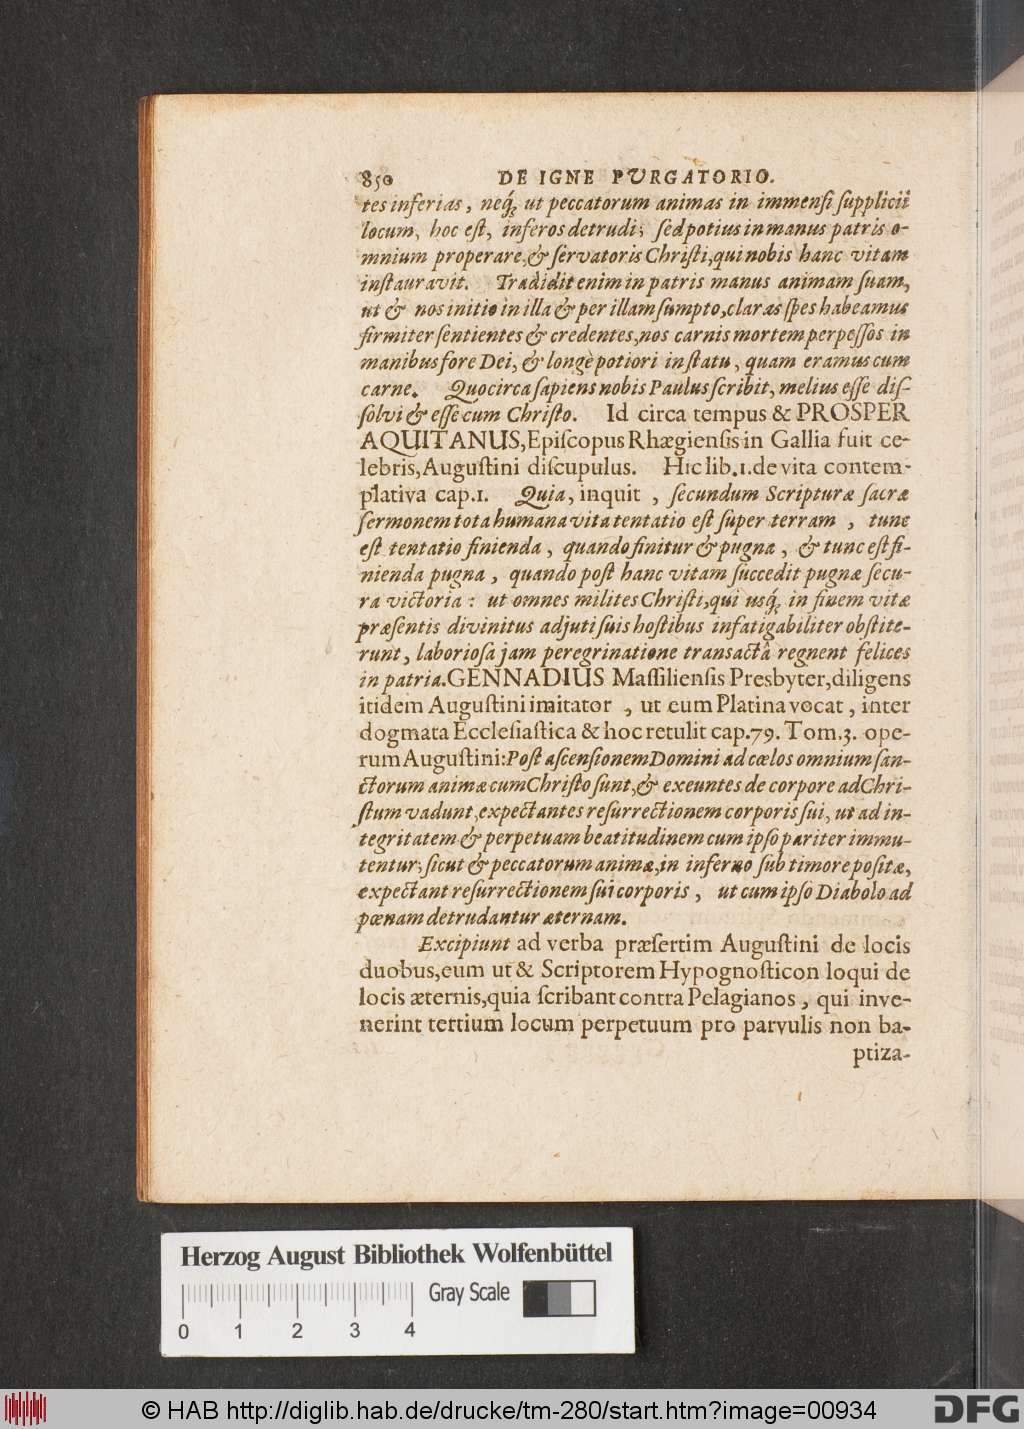 850 DE IGNE PURGATORIO.
tes inferias, neq́; ut peccatorum animas in immensi supplicii
locum, hoc est, inferos detrudi; sed potius in manus patris o-
mnium properare, & servatoris Christi, qui nobis hanc vitam
instauravit. Tradidit enim in patris manus animam suam,
ut & nos initio in illa & per illam sumpto, claras spes habeamus
firmiter sentientes & credentes, nos carnis mortem perpessos in
manibus fore Dei, & longè potiori in statu, quam eramus cum
carne. Quocirca sapiens nobis Paulus scribit, melius esse dis-
solvi & esse cum Christo. Id circa tempus & PROSPER
AQUITANUS, Episcopus Rhægiensis in Gallia fuit ce-
lebris, Augustini discupulus. Hic lib.1. de vita contem-
plativa cap.1. Quia, inquit, secundum Scripturæ sacræ
sermonem tota humana vita tentatio est super terram, tunc
est tentatio finienda, quando finitur & pugna, & tunc est fi-
nienda pugna, quando post hanc vitam succedit pugnæ secu-
ra victoria: ut omnes milites Christi, qui usq́; in finem vitæ
præsentis divinitus adjuti suis hostibus infatigabiliter obstite-
runt, laboriosa jam peregrinatione transactâ regnent felices
in patria. GENNADIUS Massiliensis Presbyter, diligens
itidem Augustini imitator, ut eum Platina vocat, inter
dogmata Ecclesiastica & hoc retulit cap.79. Tom.3. ope-
rum Augustini: Post ascensionem Domini ad cœlos omnium san-
ctorum animæ cum Christo sunt, & exeuntes de corpore ad Chri-
stum vadunt, expectantes resurrectionem corporis sui, ut ad in-
tegritatem & perpetuam beatitudinem cum ipso pariter immu-
tentur; sicut & peccatorum animæ, in inferno sub timore positæ,
expectant resurrectionem sui corporis, ut cum ipso Diabolo ad
pœnam detrudantur æternam.
Excipiunt ad verba præsertim Augustini de locis
duobus, eum ut & Scriptorem Hypognosticon loqui de
locis æternis, quia scribant contra Pelagianos, qui inve-
nerint tertium locum perpetuum pro parvulis non ba-
ptiza-
Herzog August Bibliothek Wolfenbüttel
Gray Scale
0 1 2 3 4
© HAB http://diglib.hab.de/drucke/tm-280/start.htm?image=00934
DFG